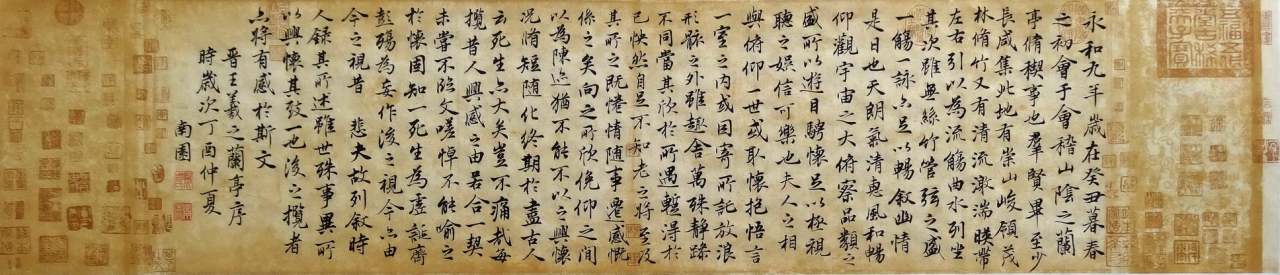 永和九年歲在癸丑暮春
之初會于會稽山陰之蘭
亭脩稧事也羣賢畢至少
長咸集此地有崇山峻領茂
林脩竹又有清流激湍暎帶
左右引以為流觴曲水列坐
其次雖無絲竹管弦之盛
一觴一詠亦足以暢敘幽情
是日也天朗氣清惠風和暢
仰觀宇宙之大俯察品類之
盛所以遊目騁懷足以極視
聽之娛信可樂也夫人之相
與俯仰一世或取懷抱悟言
一室之內或因寄所託放浪
形骸之外雖趣舍萬殊靜躁
不同當其欣於所遇蹔得於
己怏然自足不知老之將至及
其所之既惓情隨事遷感慨
係之矣向之所欣俛仰之間
以為陳迹猶不能不以之興懷
況脩短隨化終期於盡古人
云死生亦大矣豈不痛哉每
攬昔人興感之由若合一契
未嘗不臨文嗟悼不能喻之
於懷固知一死生為虛誕齊
彭殤為妄作後之視今亦由
今之視昔 悲夫故列敘時
人錄其所述雖世殊事異所
以興懷其致一也後之攬者
亦將有感於斯文
晉王羲之蘭亭序
時歲次丁酉仲夏
南園